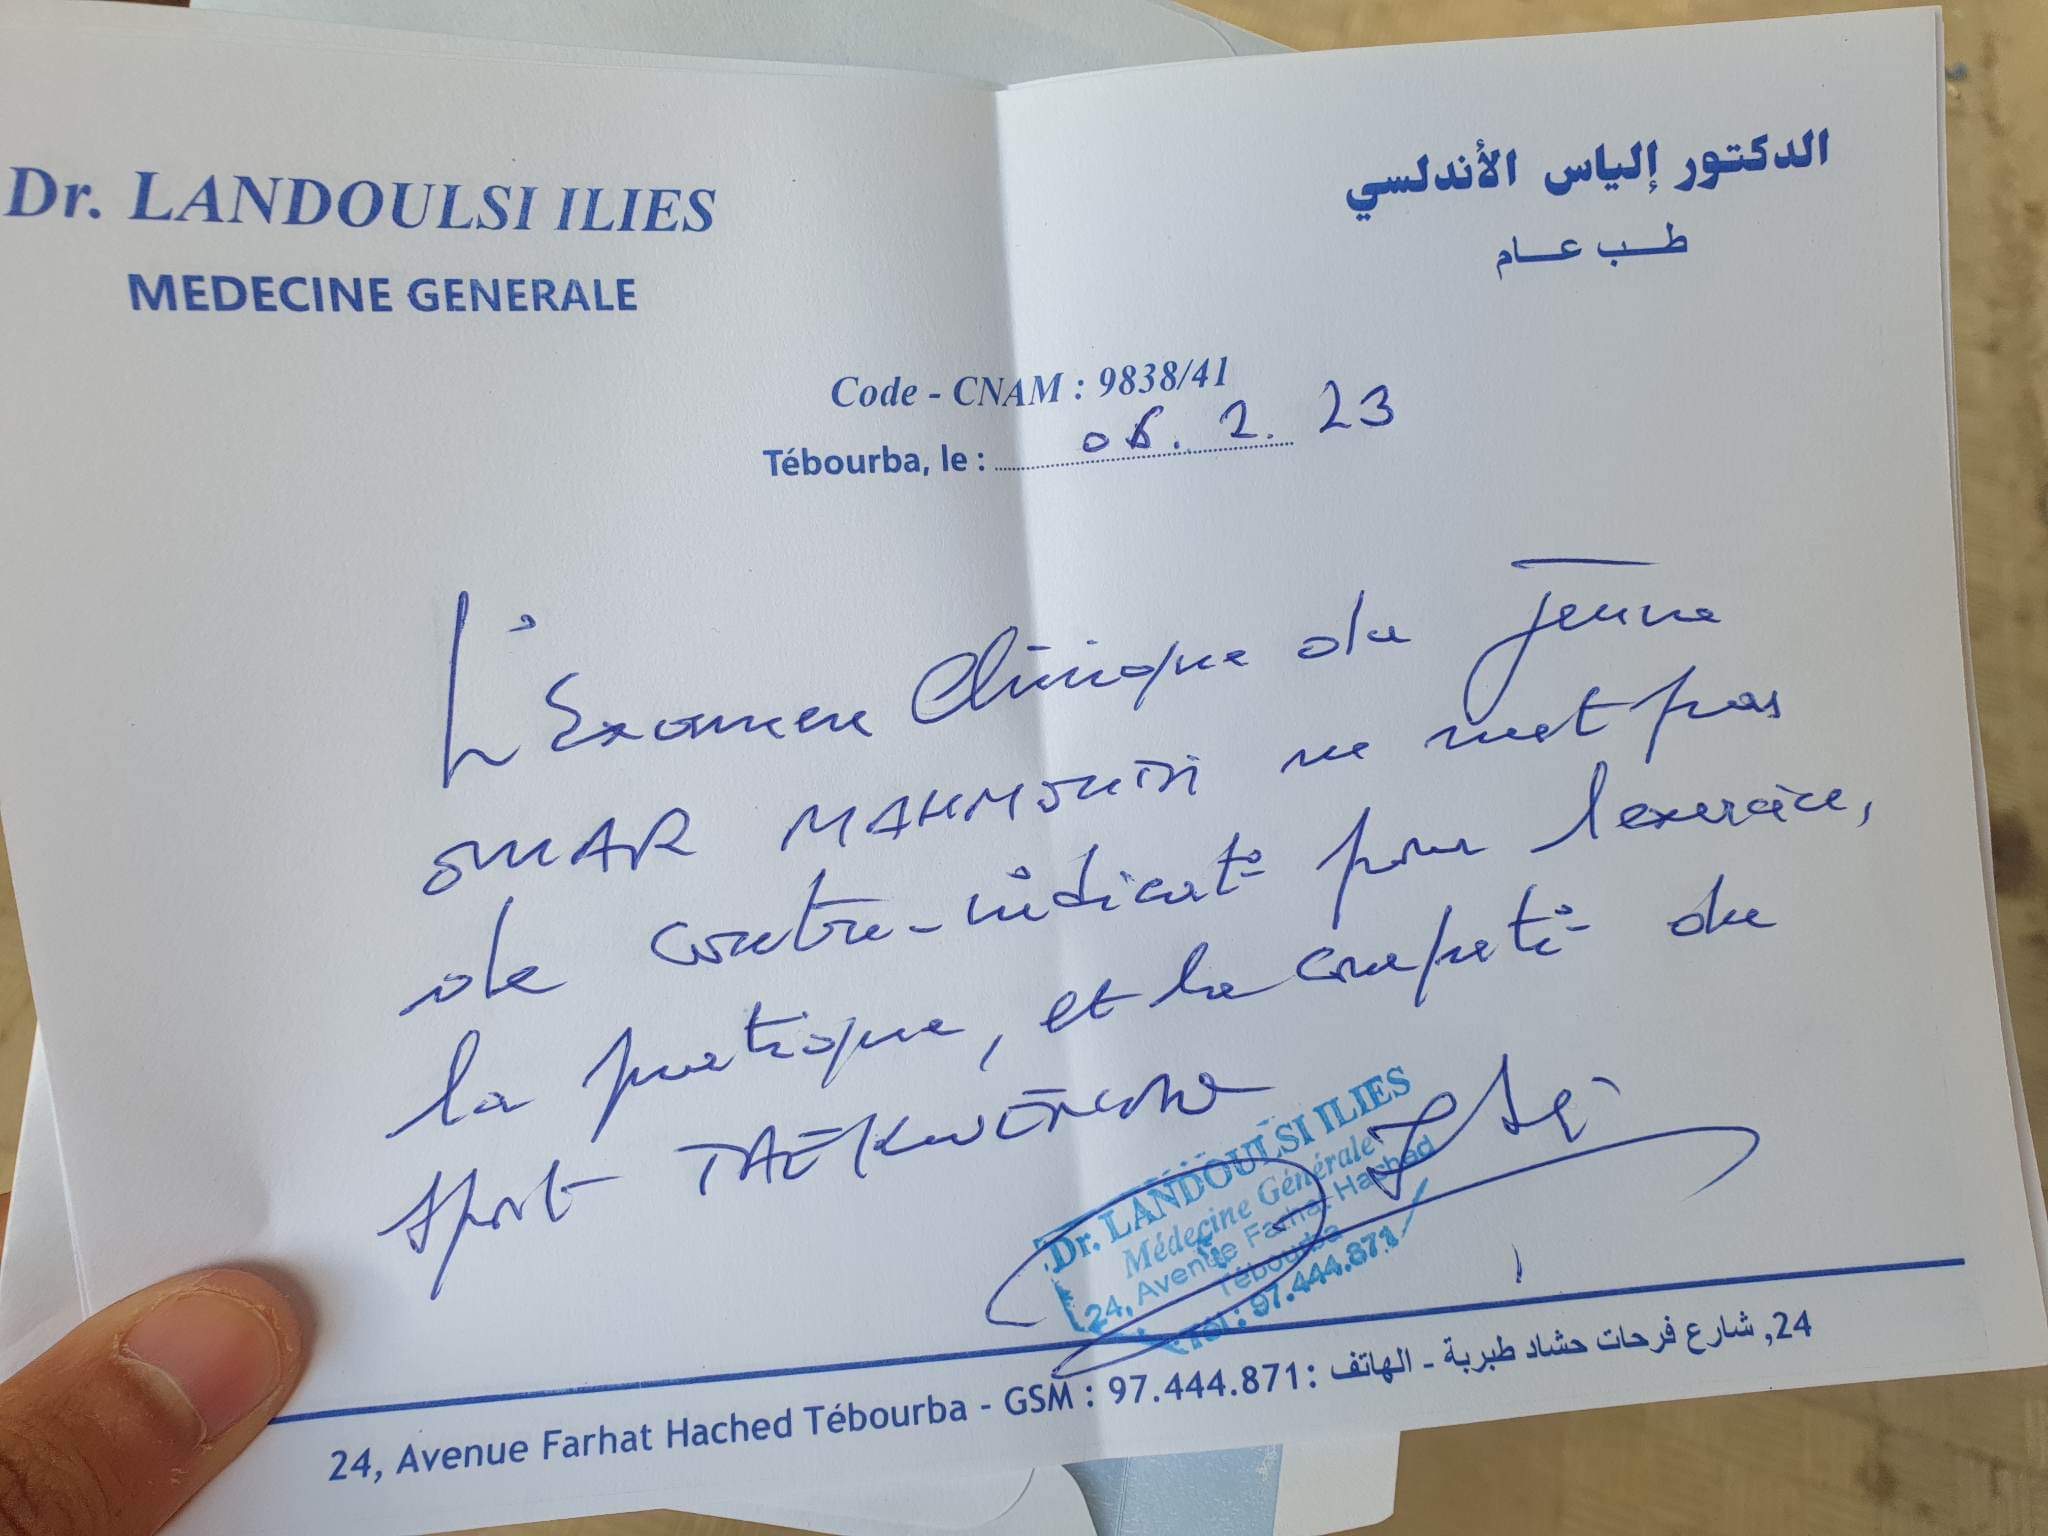 Dr. LANDOULSI ILIES
MEDECINE GENERALE
الدكتور إلياس الأندلسي
طب عام
Code - CNAM : 9838/41
Tébourba, le : 06. 2. 23
L'Examen Clinique du Jeune
OMAR MAHMOUDI ne met pas
de contre-indicat° pour l'exercice,
la pratique, et la competi° du
sport TAEKWONDO
Dr. LANDOULSI ILIES
Médecine Générale
24, Avenue Farhat Hached
Tébourba
Tél : 97.444.871
24, شارع فرحات حشاد طبربة - الهاتف :
24, Avenue Farhat Hached Tébourba - GSM : 97.444.871